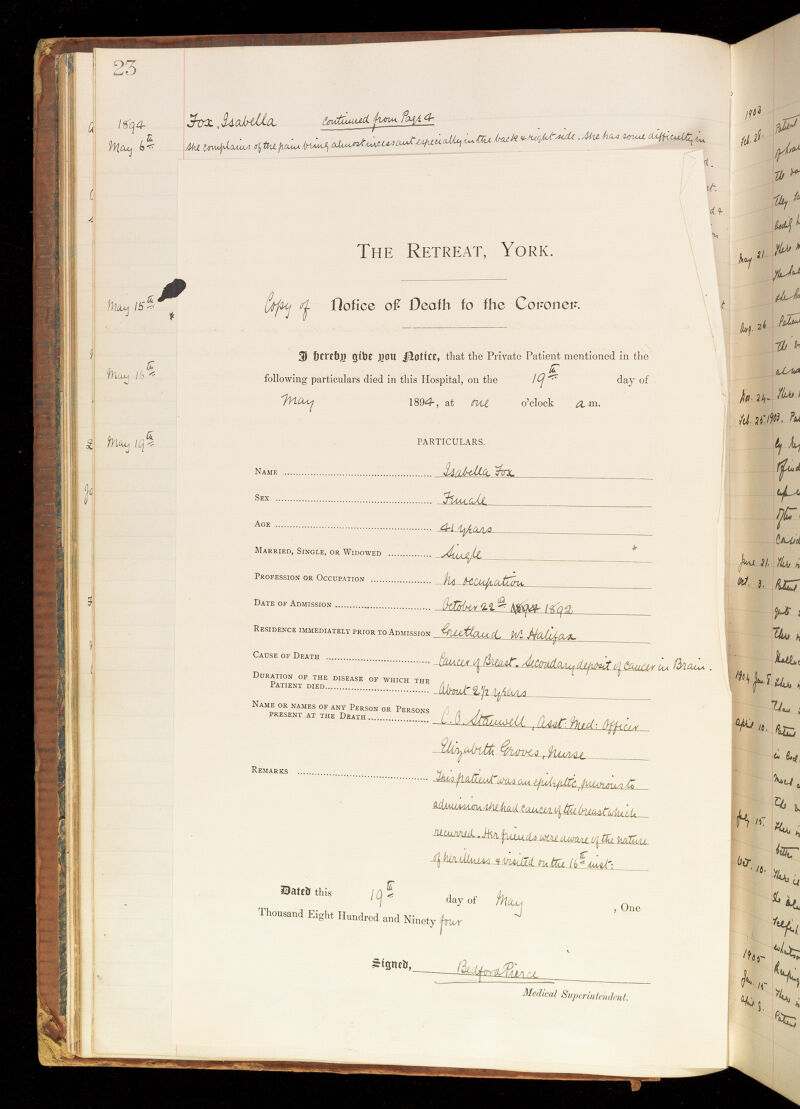 23
1894 Fox, Isabella continued from Page 4
May 6th She complains of the pain being almost incessant especially in the back & right side. She has some difficulty in
THE RETREAT, YORK.
May 15th
Copy of Notice of Death to the Coroner.
I hereby give you Notice, that the Private Patient mentioned in the
May 16th
following particulars died in this Hospital, on the 19th day of
May 1894, at one o'clock a.m.
May 19th
PARTICULARS.
NAME Isabella Fox
SEX Female
AGE 41 years
MARRIED, SINGLE, OR WIDOWED Single
PROFESSION OR OCCUPATION No occupation
DATE OF ADMISSION October 22nd 1894 1892
RESIDENCE IMMEDIATELY PRIOR TO ADMISSION Greetland Nr. Halifax
CAUSE OF DEATH Cancer of Breast. Secondary deposit of cancer in Brain.
DURATION OF THE DISEASE OF WHICH THE
PATIENT DIED About 2½ years
NAME OR NAMES OF ANY PERSON OR PERSONS
PRESENT AT THE DEATH Asst: Med: Officer
Elizabeth Groves, Nurse
REMARKS This patient was an epileptic, previous to
admission she had cancer of the breast which
recurred. Her friends were aware of the nature
of her illness & visited on the 16th inst:
Dated this 19th day of May, One
Thousand Eight Hundred and Ninety four
Signed, Bedford Pierce
Medical Superintendent.
1903
Feb. 28. Patient
May 21. There
Aug. 26 Patient
Nov. 24 There
Feb: 25 1903.
June 21.
Oct. 3. Patient
1904 Jan. 8
April 10. Patient
in bed
July 15.
Oct. 10. There is
1905
Jan. 15
April 8. Patient